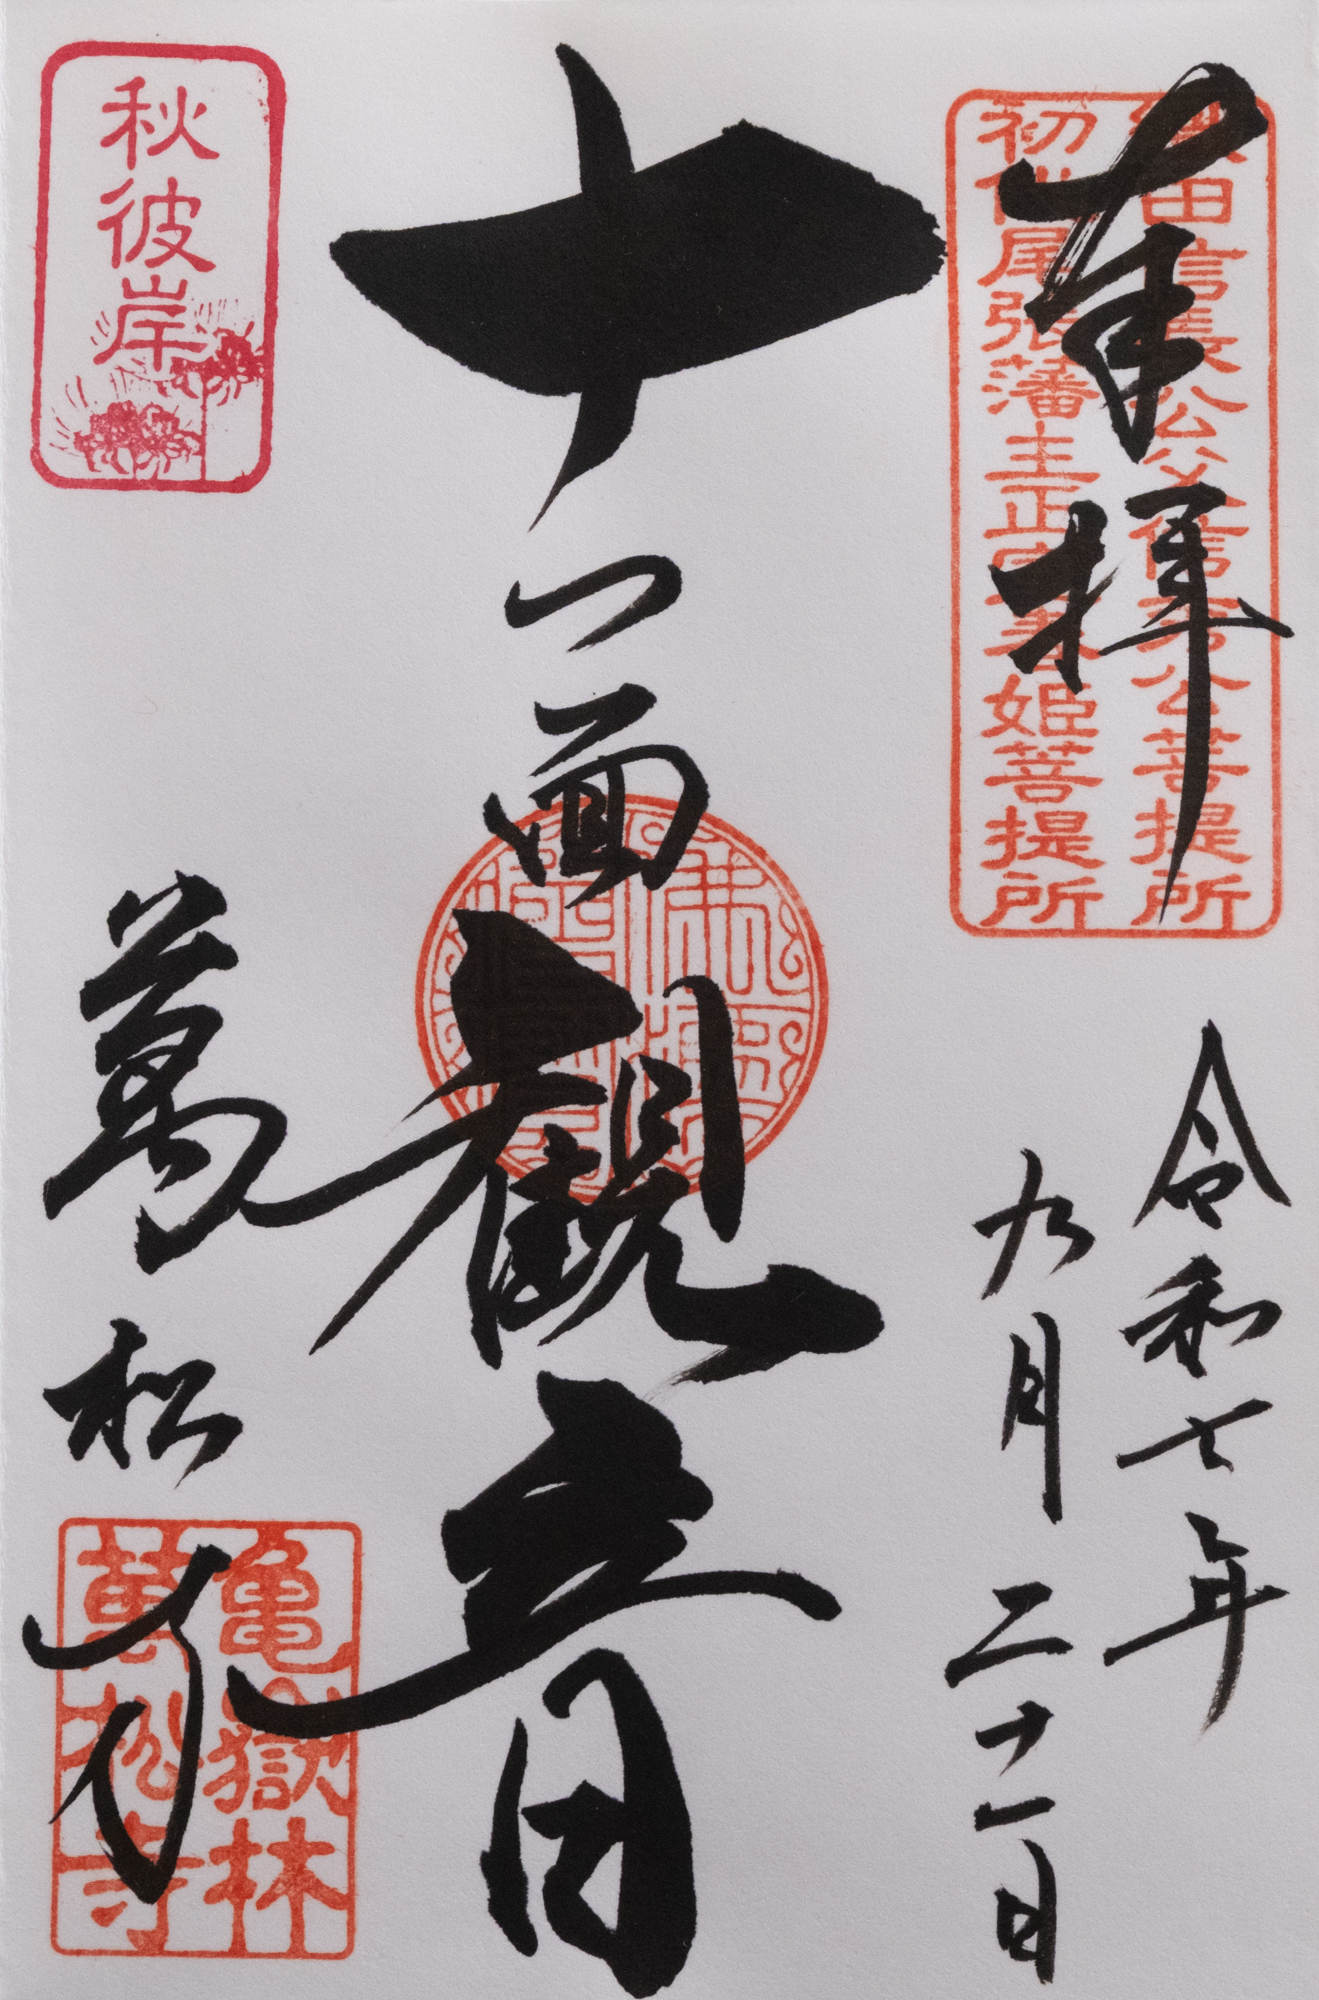 奉拝
織田信長公父信秀公菩提所
初代尾張藩主正室春姫菩提所
令和七年
九月二十一日
十一面観音
秋彼岸
萬松寺
亀嶽林
萬松寺